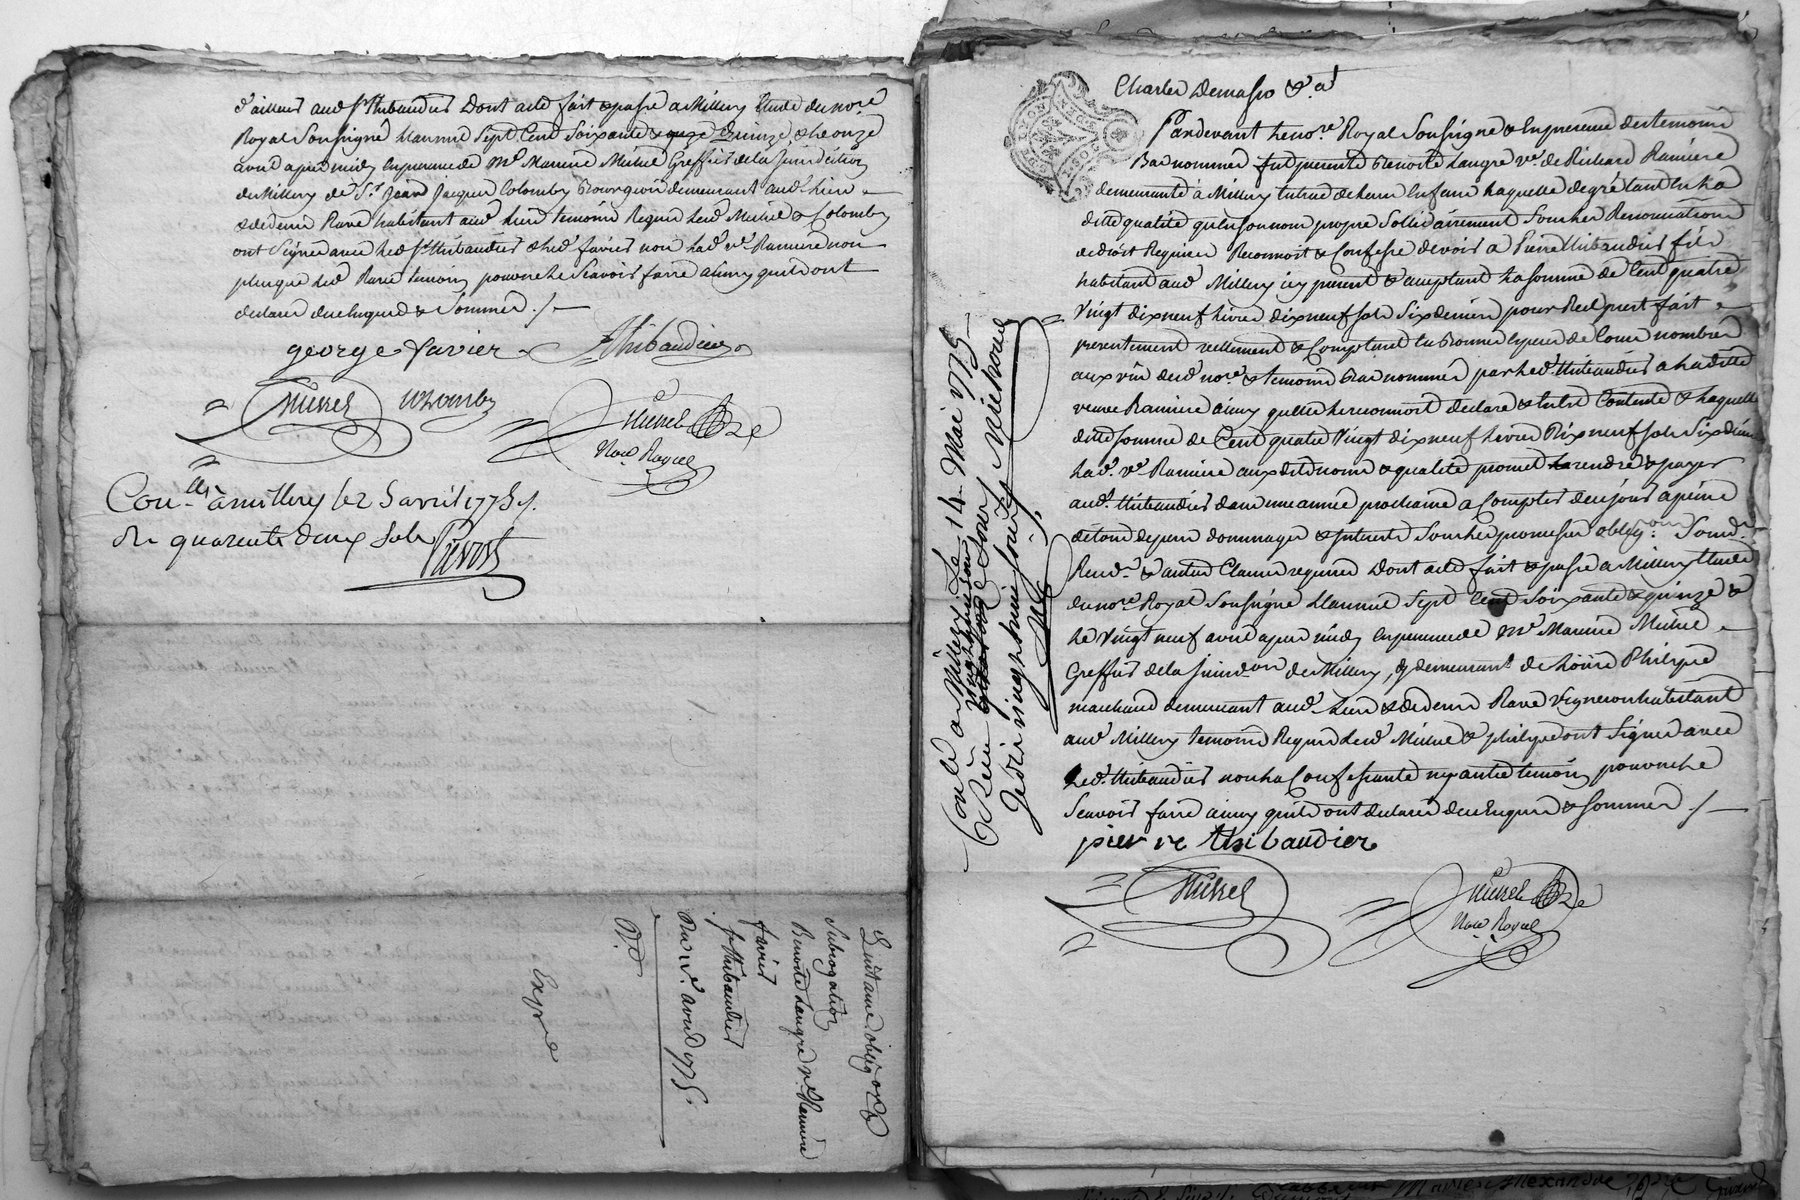 d'ailleurs aud. Sr. Thibaudier Dont acte fait & passé a Millery Etude du nore.
Royal Soussigné L'an mil Sept Cent Soixante & Quinze & le onze
avril apres midy En presence de Mr. Marine Muzel Greffier de la juridiction
de Millery de Sr. Jean Jaques Colomby Bourgeois demeurant aud. Lieu
& de denis Ravé habitant aud. Lieu temoins Requis Led. Muzel & Colomby
ont Signé avec Led. Sr. Thibaudier & Led. favier non Lad. ve. Ramiere non
plus que Led. Ravé temoin pour ne le Scavoir faire ainsy qu'ils ont
declaré de ce Enquis & Sommés ./.
george favier Thibaudier
Muzel Colomby Muzel
Nore. Royal
Con.lé a millery le 25 avril 1775
Reçu quarente deux Sols
Prevost
Quittance oblig.on &
Subrogation
Benoite Langre ve. Ramière
favier
Sr. Thibaudier
Du avril 1775.
Expé
Charles Demasso & a.
Pardevant Le nore. Royal Soussigné & En presence des temoins
Bas nommés fut presente Benoite Langre ve. de Richard Ramiere
demeurante à Millery tutrice de Leurs Enfans Laquelle de gré tant En La
ditte qualité qu'En son nom propre Sollidairement Sous Les Renonciations
de droit Requises Reconnoit & Confesse devoir a Pierre Thibaudier fils
habitant aud. Millery icy present & acceptant La Somme de Cent quatre
Vingt dix neuf Livres dix neuf sols Six deniers pour Reel prest fait
presentement reellement & Comptant En Bonnes Especes de Cours nombrées
aux vûe dud. nore. & temoins Bas nommés par Led. Thibaudier a La ditte
veuve Ramiere ainsy qu'elle Le reconnoit declare & En Est Contente & Laquelle
ditte Somme de Cent quatre Vingt dix neuf Livres Dix neuf sols Six deniers
Lad. ve. Ramiere aux dits noms & qualité promet rendre & payer
aud. Thibaudier dans une année prochaine a Compter de ce jour a peine
de tous depens dommages & interets Sous Les promesses oblig.on Soum.
Renon. & autres Clauses requises Dont acte fait & passé a Millery Etude
du nore. Royal Soussigné L'an mil Sept Cent Soixante & quinze &
Le Vingt neuf avril apres midy En presence de Mr. Marine Muzel
Greffier de la jurid.on de Millery, y demeurant de Philipe
marchand demeurant aud. Lieu & de denis Ravé Vigneron habitant
aud. Millery temoins Requis Lesd. Muzel & philipe ont Signés avec
Led. Thibaudier non La Confessante ny autre temoin pour ne Le
Scavoir faire ainsy qu'ils ont declaré de ce Enquis & Sommés ./.
pierre thibaudier
Muzel Muzel
Nore. Royal
Conlé a Millery Le 14 Mai 1775
Reçu